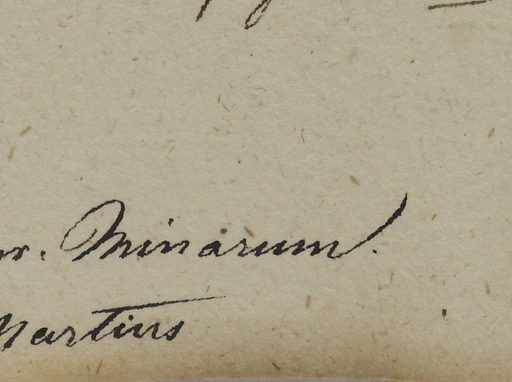 r. Minarum.
Martius